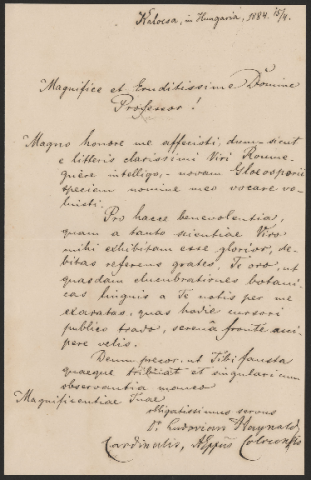 Kalocsa, in Hungaria, 1884 15/4.
Magnifice et Eruditissime Domine
Professor!
Magno honore me affecisti, dum sicut
e litteris clarissimi Viri Roume-
guère intelligo, novam Gloeosporii
speciem nomine meo vocare vo-
luisti.
Pro hacce benevolentia,
quam a tanto scientiae Viro
mihi exhibitam esse glorior, de-
bitas referens grates, Te oro, ut
quasdam elucubrationes botani-
cas linguis a Te notis per me
exaratas, quas hodie cursori
publico trado, serenâ fronte acci-
pere velis.
Demum precor, ut Tibi fausta
quaeque tribuat et singulari cum
observantia maneo
Magnificentiae Tuae
obligatissimus servus
Dr Ludovicus Haynald
Cardinalis, AEppus Colocensis